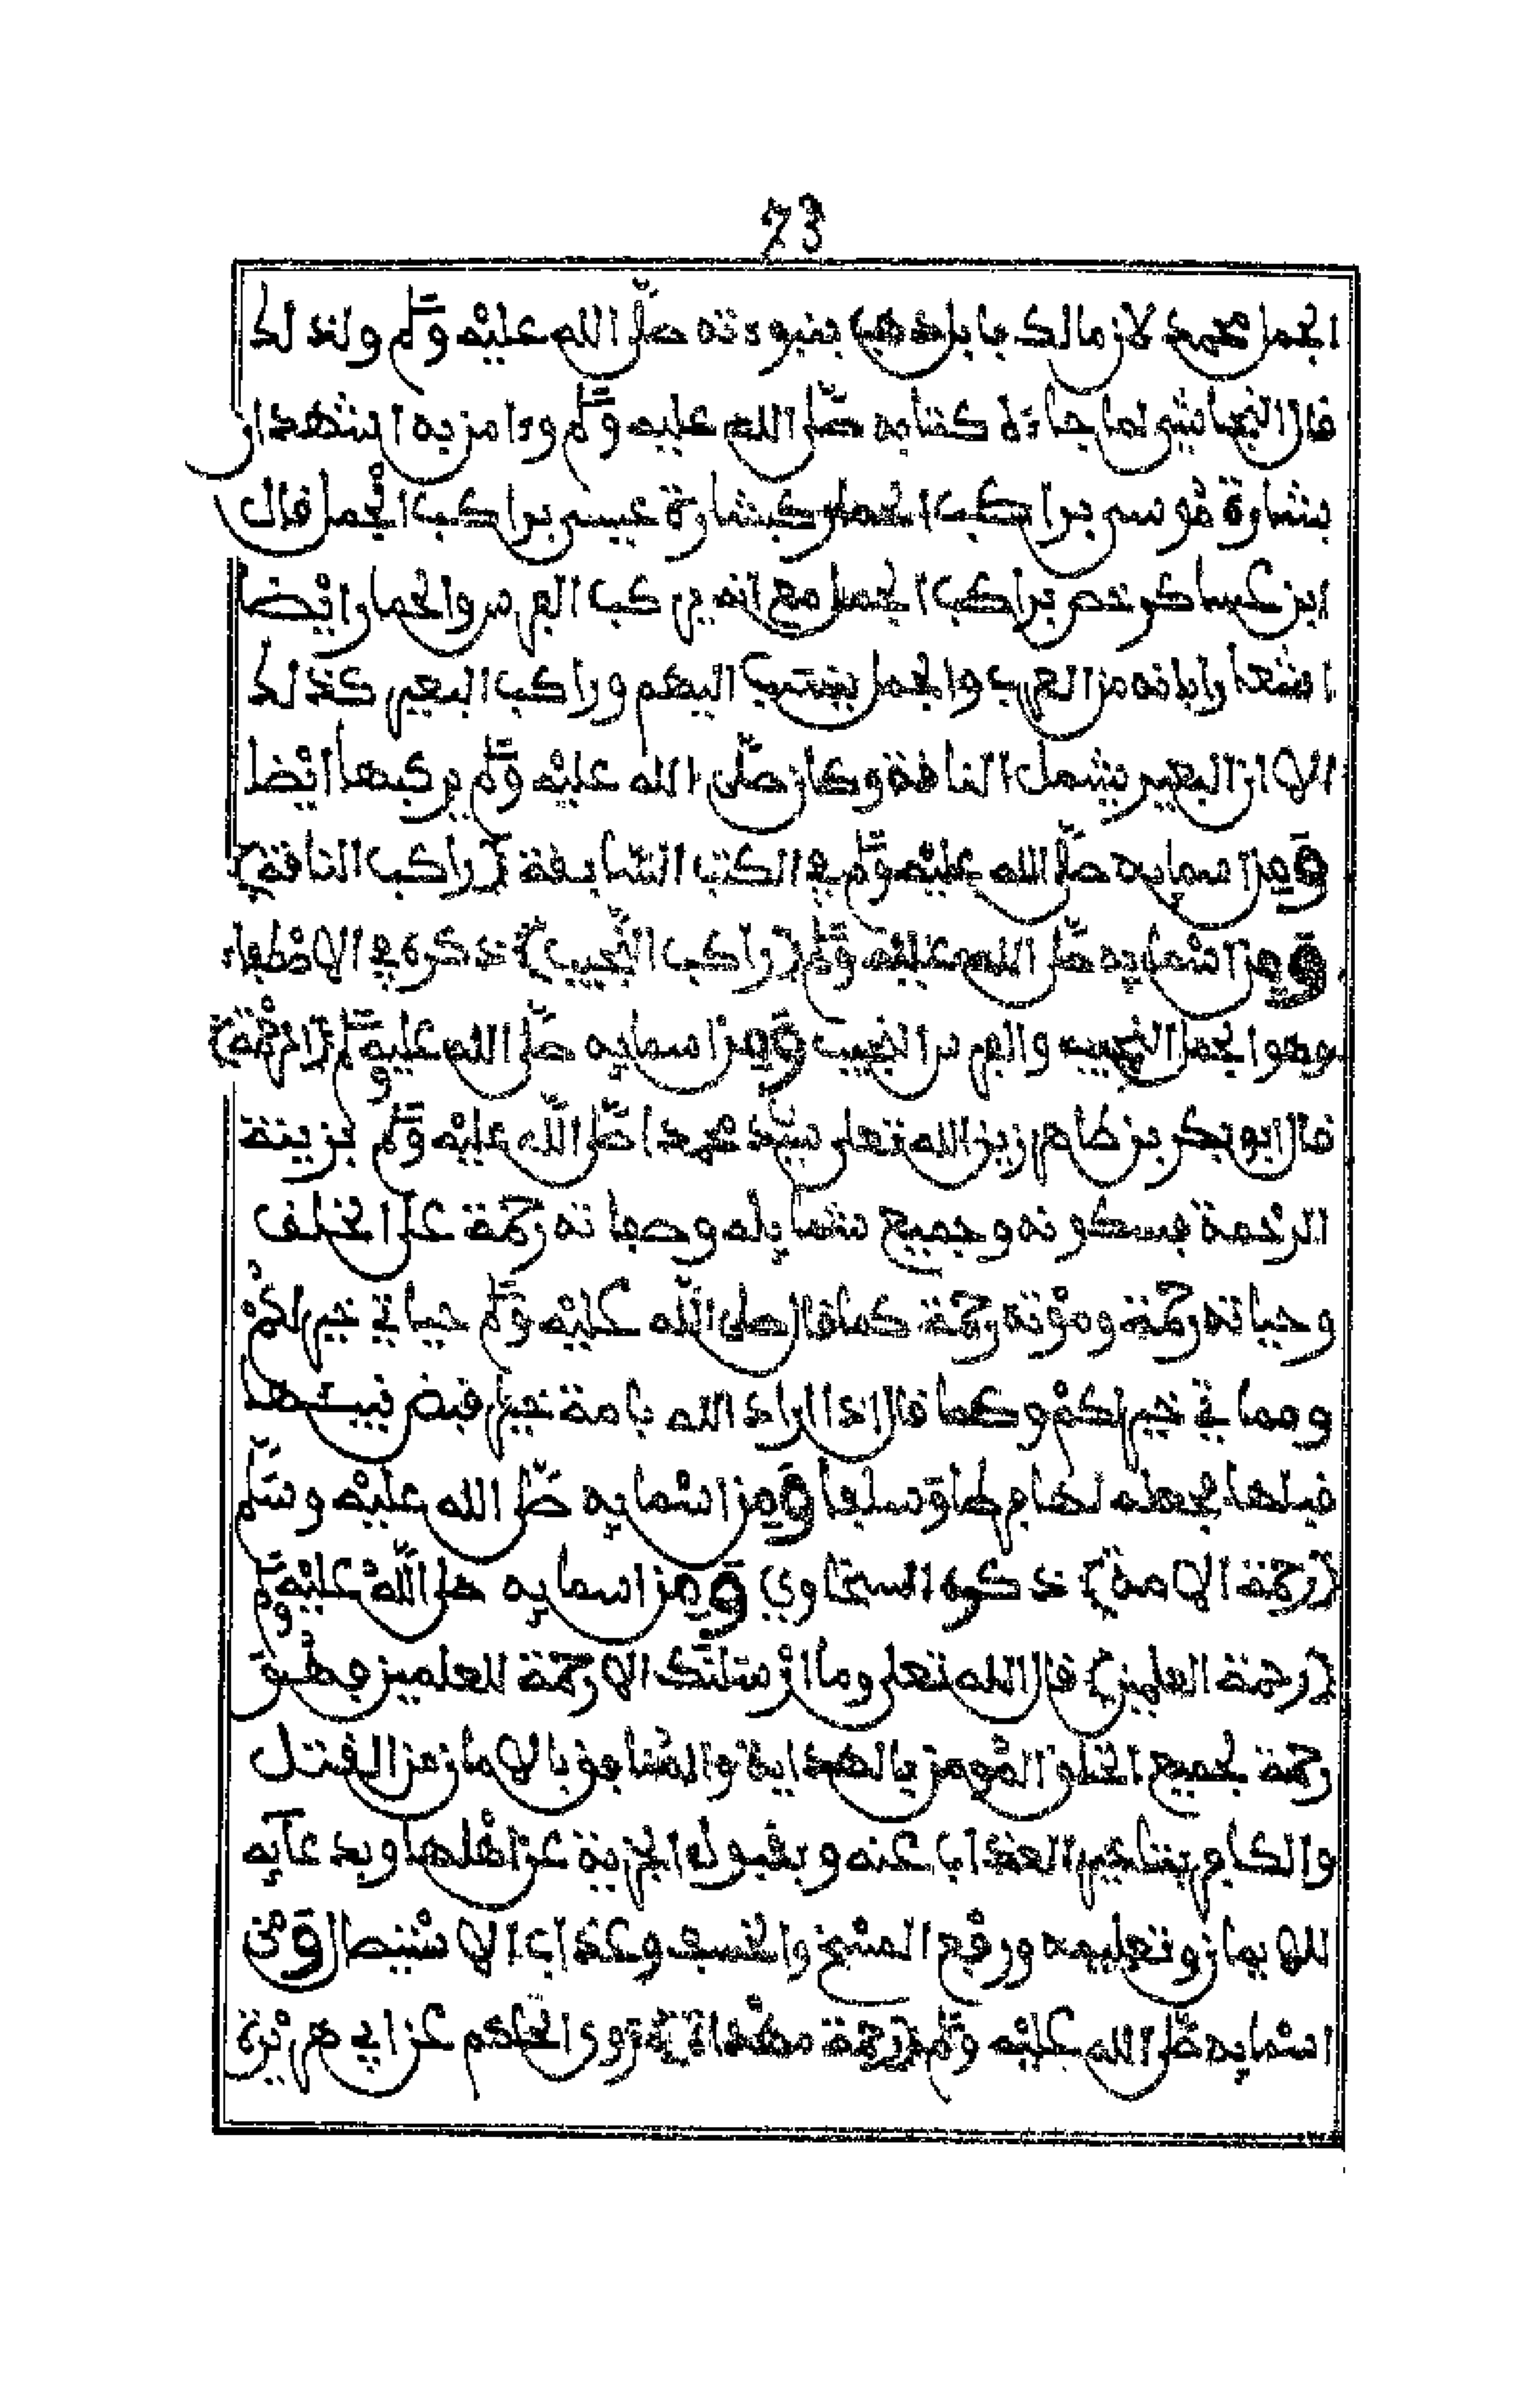 73
الجمل محمد لان مالك بابل ذهب بنبوءته صلى الله عليه وسلم ولذلك
قال النجاشي لما جاءه كتابه صلى الله عليه وسلم وءامن به اشهد ان
بشارة موسى براكب الحمار كبشارة عيسى براكب الجمل قال
ابن عساكر خص براكب الجمل مع انه يركب الفرس والحمار ايضا
اشعارا بانه من العرب والجمل يختص اليهم وراكب البعير كذلك
الا ان البعير يشمل الناقة وكان صلى الله عليه وسلم يركبها ايضا
ومن اسمايه صلى الله عليه وسلم في الكتب السابقة (راكب الناقة)
ومن اسمايه صلى الله عليه وسلم (راكب النجيب) ذكره في الاصطفاء
وهو الجمل النجيب والفرس النجيب ومن اسمايه صلى الله عليه وسلم (الرحمة)
قال ابو بكر بن طاهر زين الله تعلى سيد محمدا صلى الله عليه وسلم بزينة
الرحمة فسكونه وجميع شمايله وصفاته رحمة على الخلف
وحياته رحمة وموته رحمة كما قال صلى الله عليه وسلم حياتي خير لكم
ومماتي خير لكم وكما قال اذا اراد الله بامة خيرا قبض نبيها
قبلها فجعله لها فرطا وسلفا ومن اسمايه صلى الله عليه وسلم
(رحمة الامة) ذكره السخاوي ومن اسمايه صلى الله عليه وسلم
(رحمة العلمين) قال الله تعلى وما ارسلنك الا رحمة للعلمين فهو
رحمة لجميع الخلق المومن بالهداية والمنافق بالامان من القتل
والكافر بتاخير العذاب عنه وبقبول الجزية عن اهلها وبدعايه
للايمان وتعليمه ورفع المسخ والخسف وعذاب الاستيصال ومن
اسمايه صلى الله عليه وسلم (رحمة مهداة) روى الحاكم عن ابي هريرة